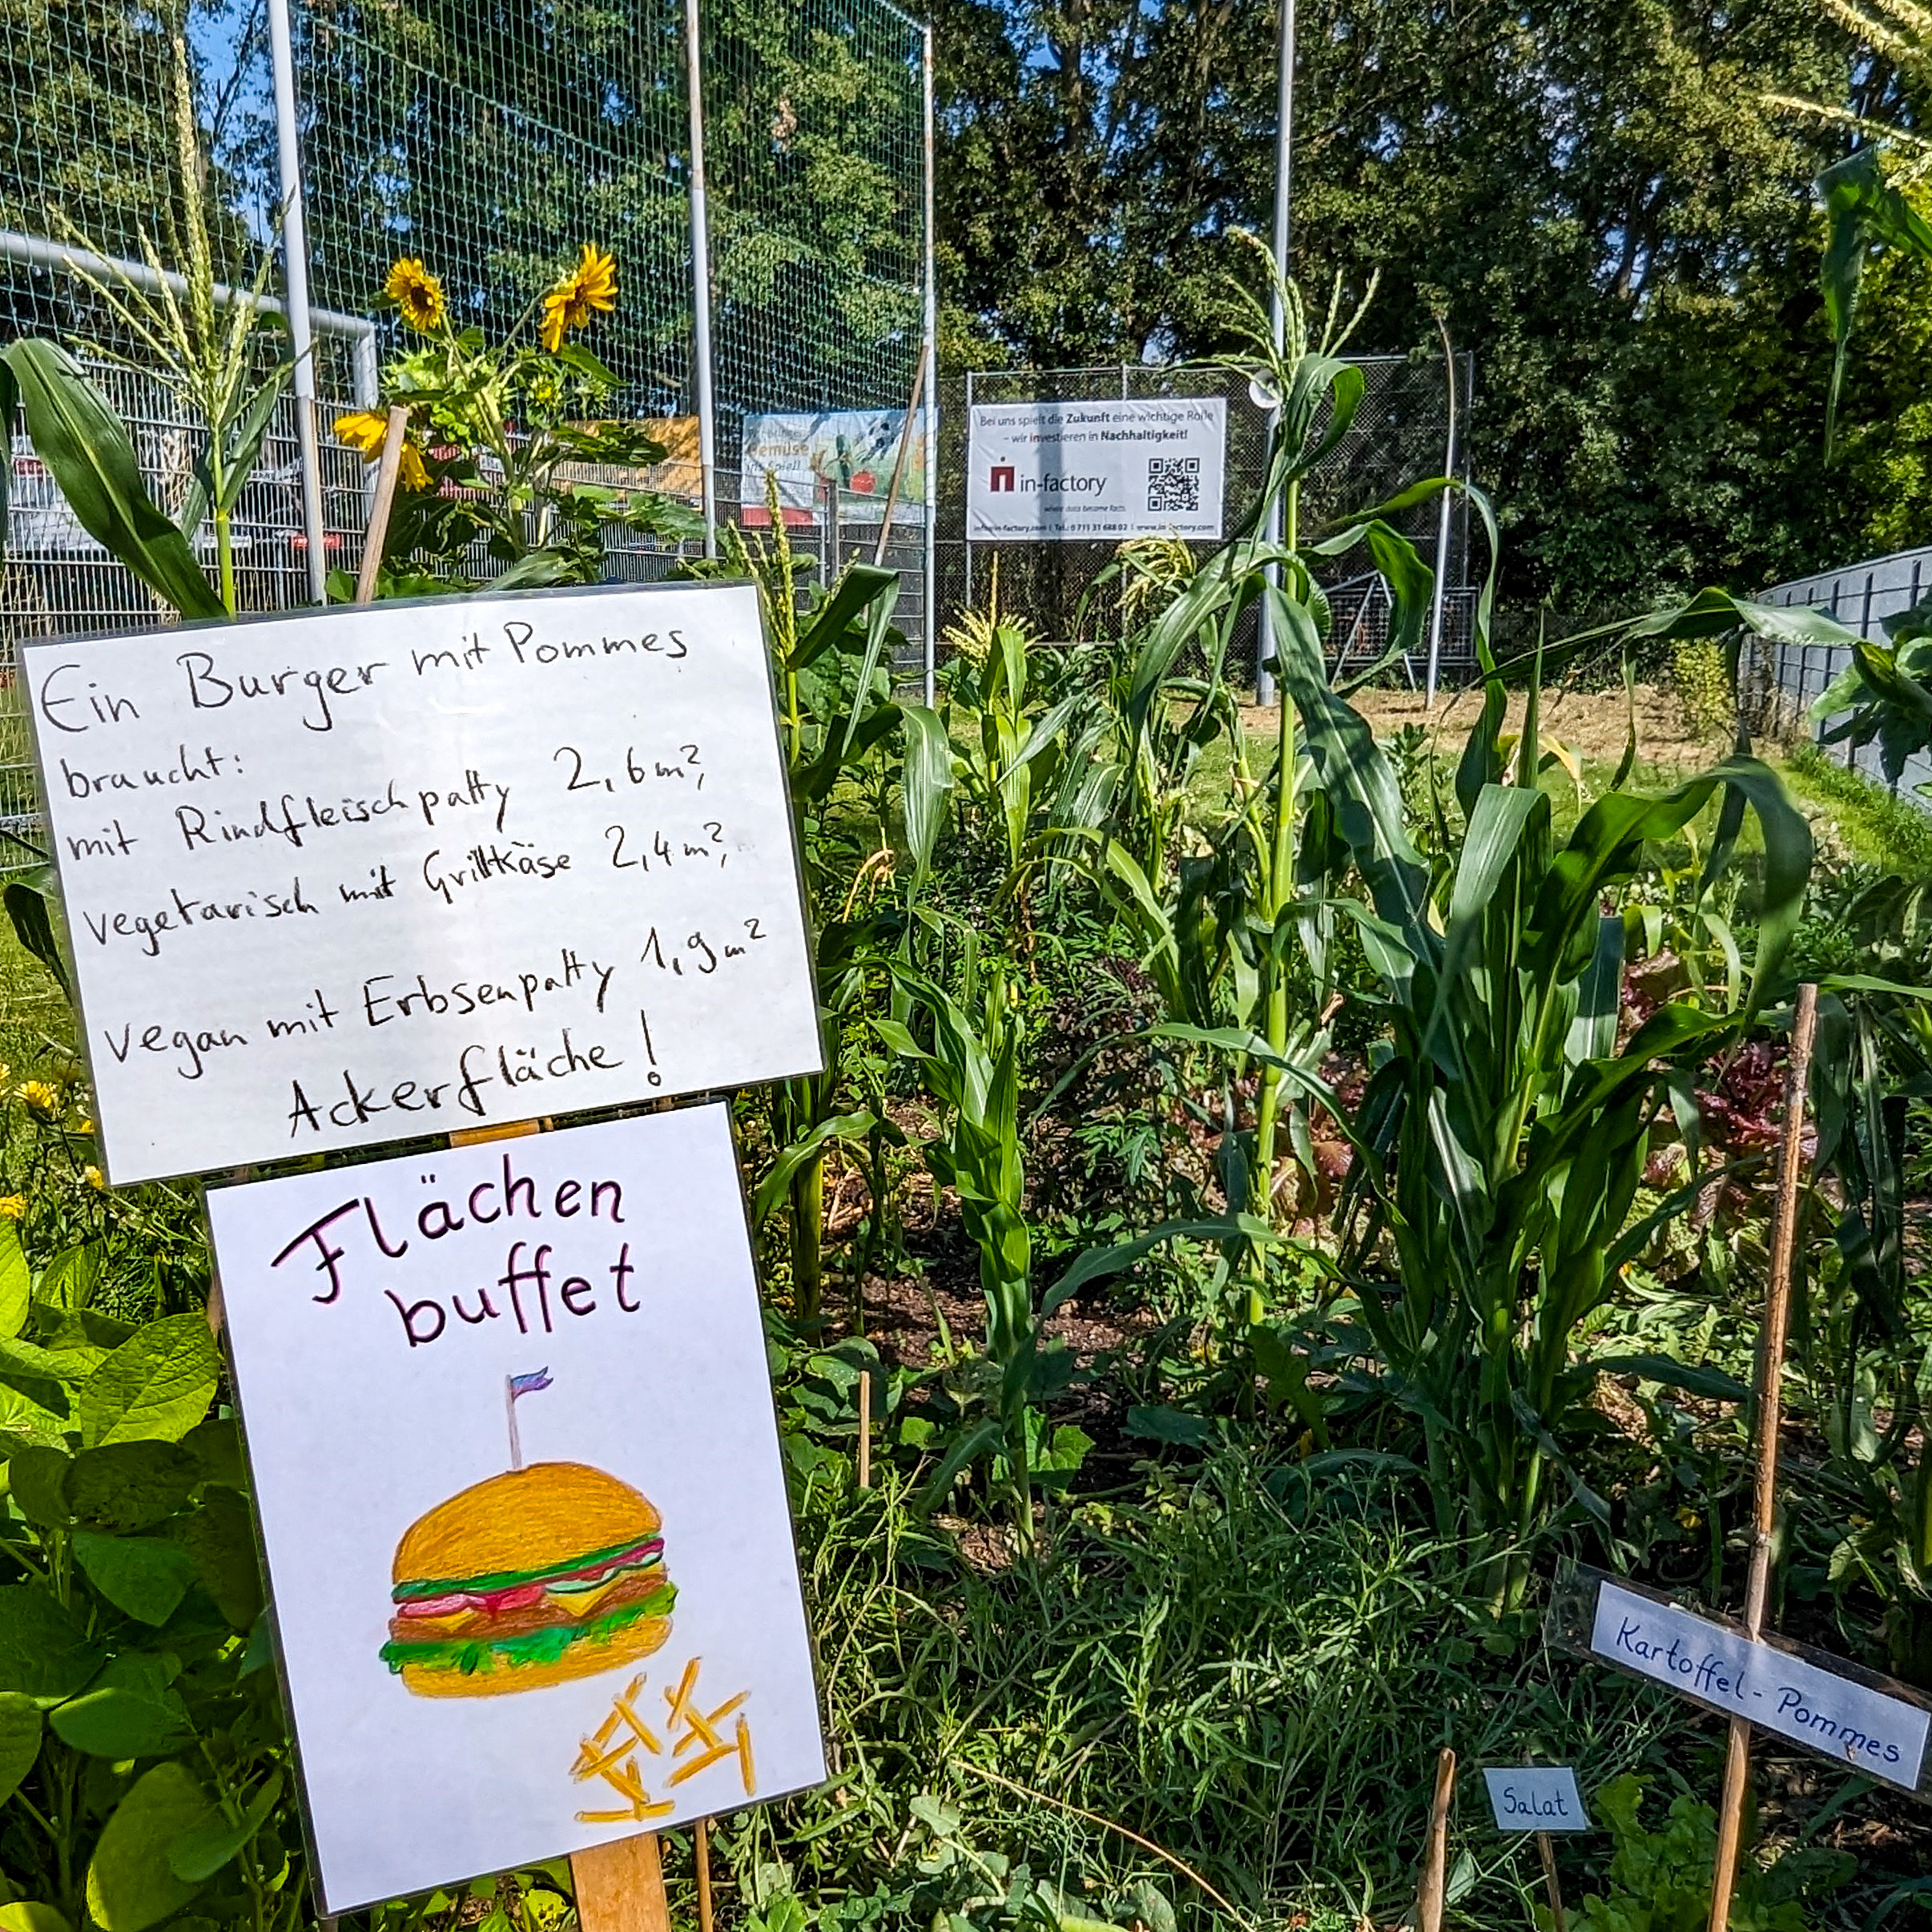 Bei uns spielt die Zukunft eine wichtige Rolle
– wir investieren in Nachhaltigkeit!
in-factory
where data become facts.
Gemüse
ins Spiel!
Ein Burger mit Pommes
braucht:
mit Rindfleischpatty 2,6 m²,
vegetarisch mit Grillkäse 2,4 m²,
vegan mit Erbsenpatty 1,9 m²
Ackerfläche!
Flächen
buffet
Kartoffel-Pommes
Salat